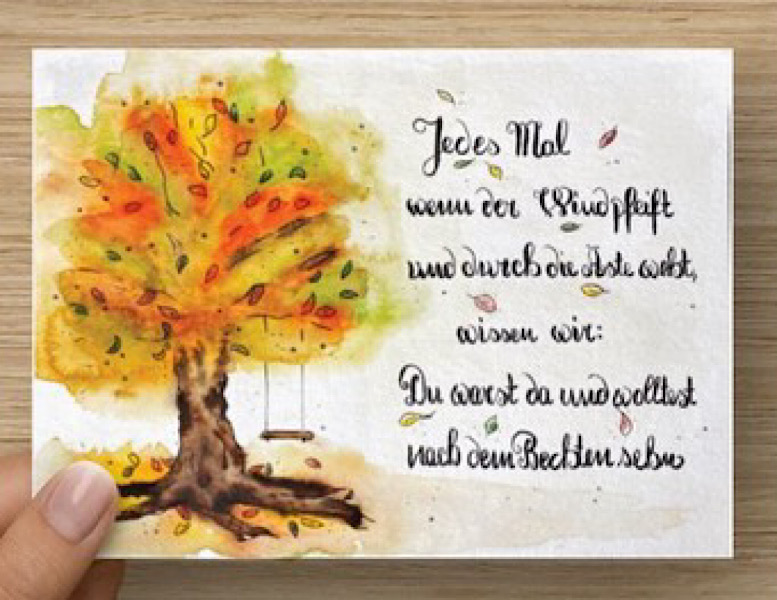 Jedes Mal
wenn der Wind pfeift
und durch die Äste weht,
wissen wir:
Du warst da und wolltest
nach dem Rechten sehn